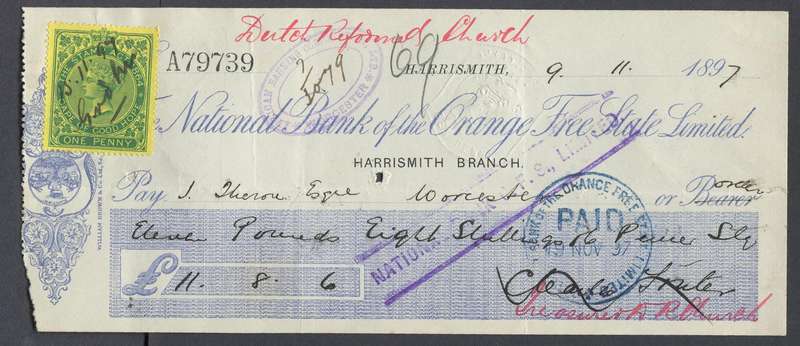 Dutch Reformed Church
A79739
69
HARRISMITH, 9. 11. 1897
The National Bank of the Orange Free State Limited,
HARRISMITH BRANCH.
Pay J. Theron Esqre Worcester or Bearer Order
Eleven Pounds Eight Shillings & 6 Pence Stg
£ 11. 8. 6
Treasurer D R Church
OF GOOD HOPE
ONE PENNY
PAID
NATIONAL
WILLIAM BROWN & Co. Ld.